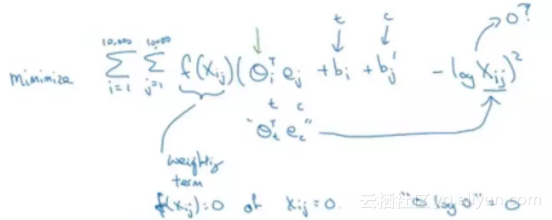 t c 0?
minimize ∑_{i=1}^{10,000} ∑_{j=1}^{10,000} f(X_{ij}) (θ_i^T e_j + b_i + b_j' - log X_{ij})^2
t c
"θ_t^T e_c"
weighting
term
f(X_{ij}) = 0 if X_{ij} = 0. "0 log 0" = 0
云栖社区 yq.aliyun.com